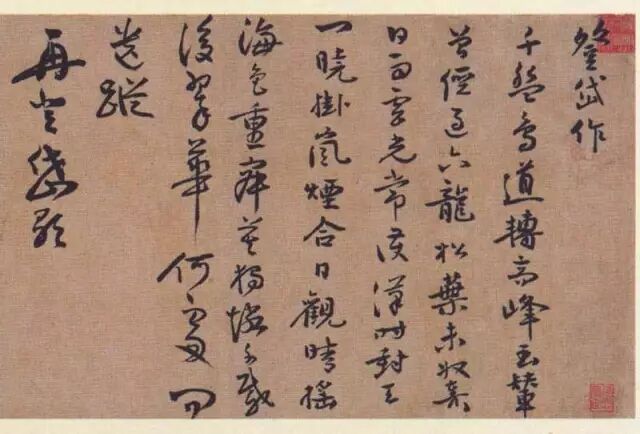 登岱作
千盤鳥道轉高峰玉輦
曾經過六龍松葉未收秦
日雨雲光常護漢時封天
門曉掛嵐煙合日觀晴搖
海色重寂莫獨懷千載
後翠華何處問
遺蹤
再登岱